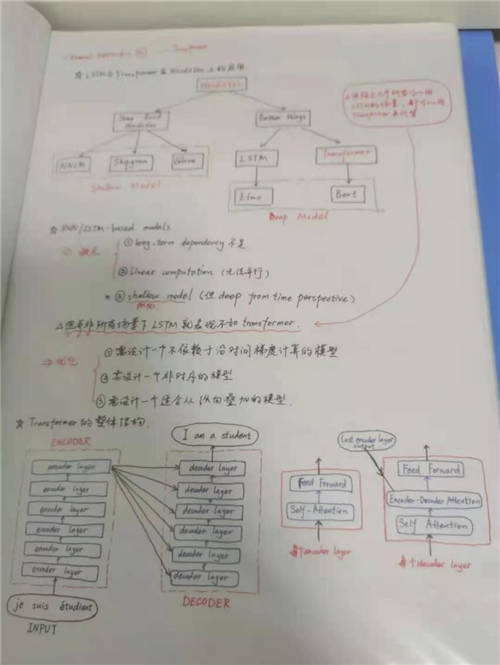 Transformer
☆ LSTM与Transformer在Word2Vec上的应用
Word2Vec
Skip Gram
NNLM
Skipgram
Glove
Shallow Model
LSTM
Transformer
Elmo
Bert
Deep Model
Transformer
☆ RNN/LSTM-based models
缺点
① long-term dependency 不足
② Linear computation (无法并行)
* ③ shallow model (但 deep from time perspective)
△ 但并非所有场景下LSTM就表现不如transformer.
① 需设计一个不依赖于沿时间梯度计算的模型
② 需设计一个非时序的模型
③ 需设计一个适合从纵向叠加的模型.
☆ Transformer的整体结构.
ENCODER
encoder layer
encoder layer
encoder layer
encoder layer
encoder layer
encoder layer
je suis étudiant
INPUT
I am a student
decoder layer
decoder layer
decoder layer
decoder layer
decoder layer
decoder layer
DECODER
Feed Forward
Self-Attention
单个encoder layer
Last encoder layer
output
Feed Forward
Encoder-Decoder Attention
Self Attention
单个decoder layer